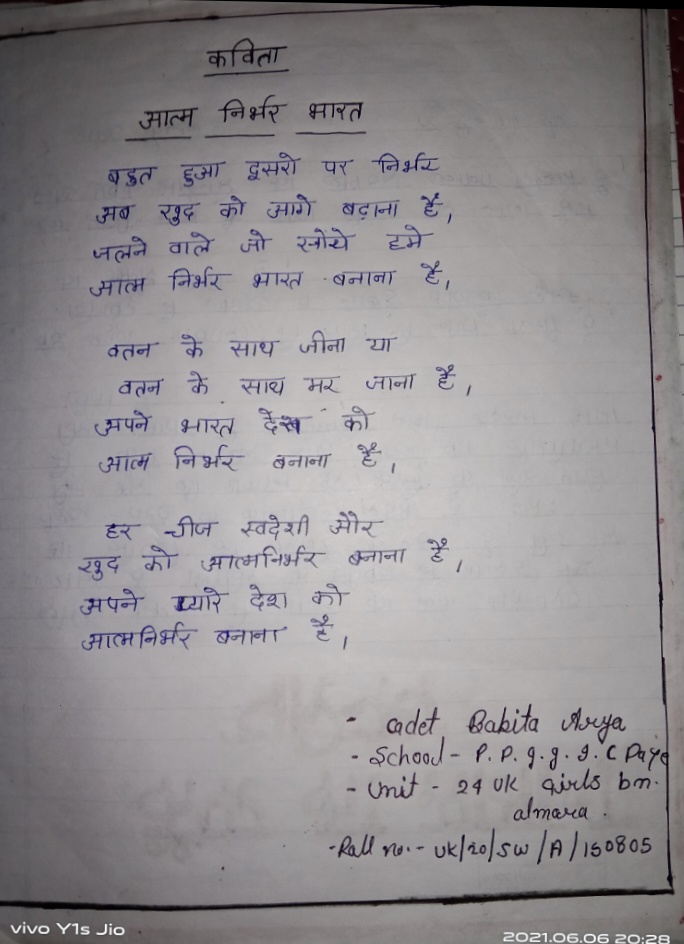 कविता
आत्म निर्भर भारत
बहुत हुआ दूसरो पर निर्भर
अब खुद को आगे बढ़ाना है,
जलने वाले जो सोचे हमे
आत्म निर्भर भारत बनाना है,
वतन के साथ जीना या
वतन के साथ मर जाना है,
अपने भारत देश को
आत्म निर्भर बनाना है,
हर चीज स्वदेशी और
खुद को आत्मनिर्भर बनाना है,
अपने प्यारे देश को
आत्मनिर्भर बनाना है,
- Cadet Babita Arya
- School - P. P. g. g. I. C
- Unit - 24 UK girls bn.
almara.
- Roll no. - UK/20/SW/A/150805
vivo Y1s Jio
2021.06.06 20:28